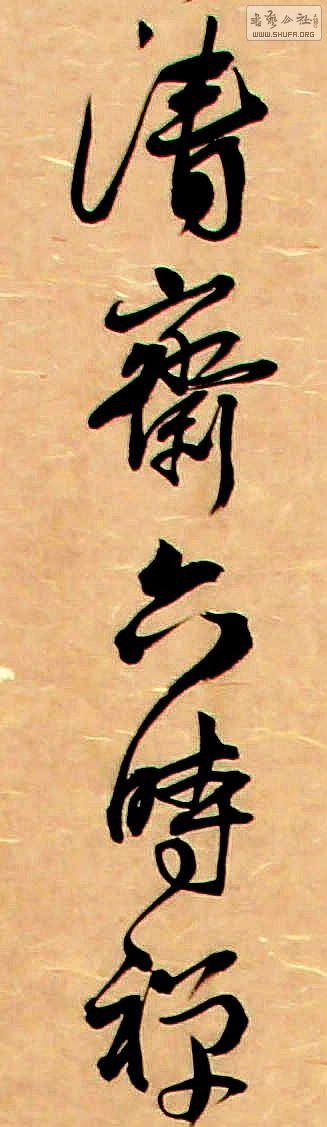 書藝公社
WWW.SHUFA.ORG
清齋六時禪